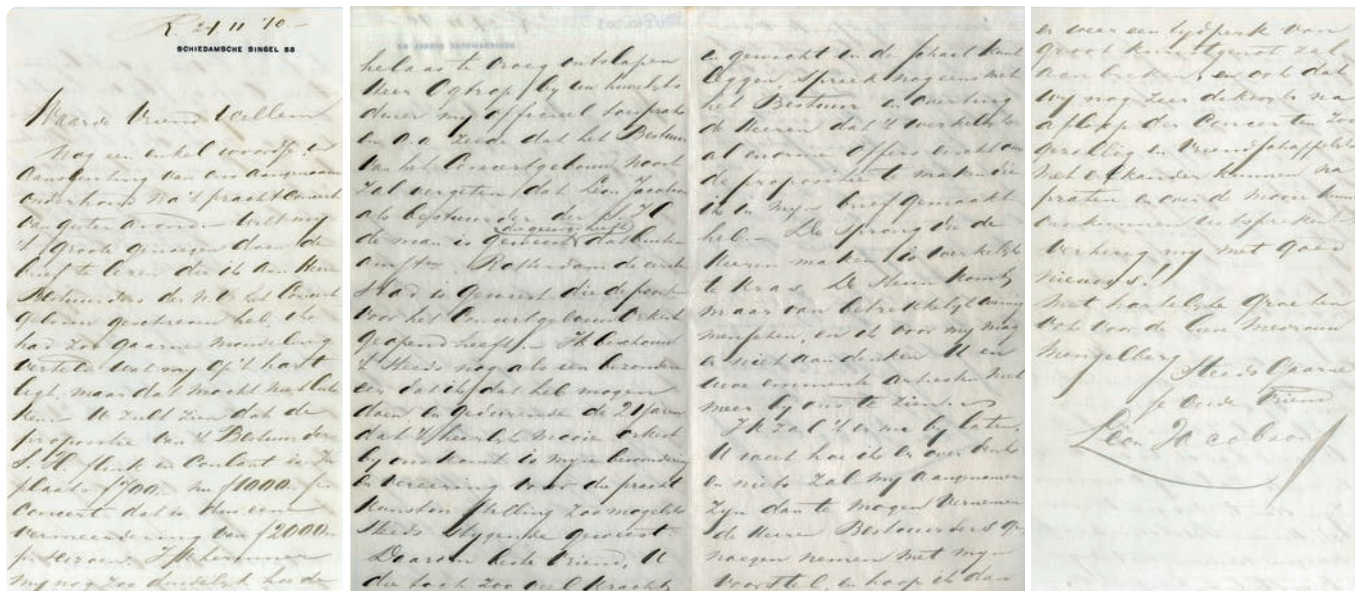 R. 24 11 '10
SCHIEDAMSCHE SINGEL 58
Waarde Vriend Willem
Nog een enkel woordje in
aansluiting van ons aangenaam
onderhoud na 't prachtconcert
van gister avond. Wilt my
't groote genoegen doen de
brief te lezen die ik aan Heeren
Bestuurders der N.V. het Concert
gebouw geschreven heb. Ik
had zoo gaarne mondeling
verteld wat my op 't hart
ligt, maar dat mocht niet
U zult zien dat de
propositie van 't Bestuur der
S. H flink en coulant is. In
plaats f 700.- nu f 1000.- per
concert dat is dus een
vermeerdering van f 2000.-
per seizoen. Ik herinner
my nog zoo duidelyk hoe de
SCHIEDAMSCHE SINGEL 58
helaas te vroeg ontslapen
Heer Ogtrop by een
diner my officieel
en o.a. zeide dat het Bestuur
van het Concertgebouw nooit
zal vergeten dat Leon Jacobson
als bestuurder der S. H
de man is geweest
die gezorgd heeft
dat buiten
Rotterdam de eerste
stad is geweest die de poort
voor het Concertgebouw Orkest
geopend heeft. Ik beschouw
't steeds nog als een bezondere
eer dat ik dat heb mogen
doen en gedurende de 21 jaren
dat 't heerlyk mooie orkest
by ons komt is myn bewondering
en vereering voor die pracht
Kunstinstelling zoo mogelyk
steeds stygende geweest
Daarom beste Vriend, U
die toch zoo veel kracht
en gewicht in de schaal kunt
leggen, spreek nog eens met
het Bestuur en overtuig
de Heeren dat 't werkelyk
al enorme offers
de propositie te maken die
ik in myn brief gemaakt
heb. De sprong die de
Heeren maken is werkelyk
te kras. De steun komt
maar van betrekkelyk weinig
menschen, en ik voor my mag
er niet aan denken U en
uwe eminente artiesten niet
meer by ons te zien.
Ik zal 't er nu by laten,
U weet hoe ik er over denk
en niets zal my aangenamer
zyn dan te mogen vernemen
de Heeren Bestuurders ge-
noegen nemen met myn
voorstel, en hoop ik dan
er weer een tydperk van
groot kunstgenot zal
aanbreken, en ook dat
wy nog zeer dikwyls na
afloop der concerten zoo
gezellig en vriendschappelyk
met elkander kunnen na
praten en over de mooie kunst
en bespreken.
Verheug my met goed
nieuws!
Met hartelyke groeten
ook voor de lieve Mevrouw
Mengelberg
Steeds Gaarne
je oude Vriend
Leon Jacobson